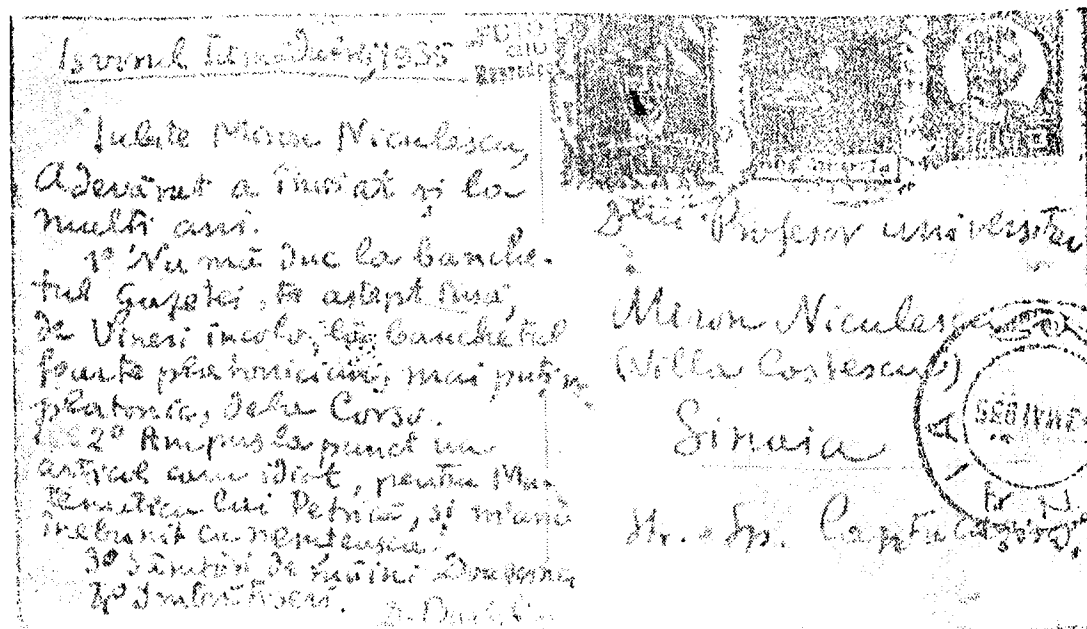 Isvorul Tămăduirii, 1935
Iubite Miron Niculescu,
Adevărat a înviat și la
mulți ani.
1º Nu mă duc la banche-
tul Gazetei, te aștept însă,
de Vineri încolo, la banchetul
foarte platonician, mai puțin
platonic, dela Corso.
2º Am pus la punct un
articol cam idiot, pentru Ma-
tematica lui Petrică, și m'am
înebunit cu
3º Sărutări de mâini Doamnei
4º Îmbrățișeri.
D. Barbilian
Dlui Profesor universitar
Miron Nicolescu
(Villa Costescu)
Sinaia
Str.
IAȘI
MAI 935